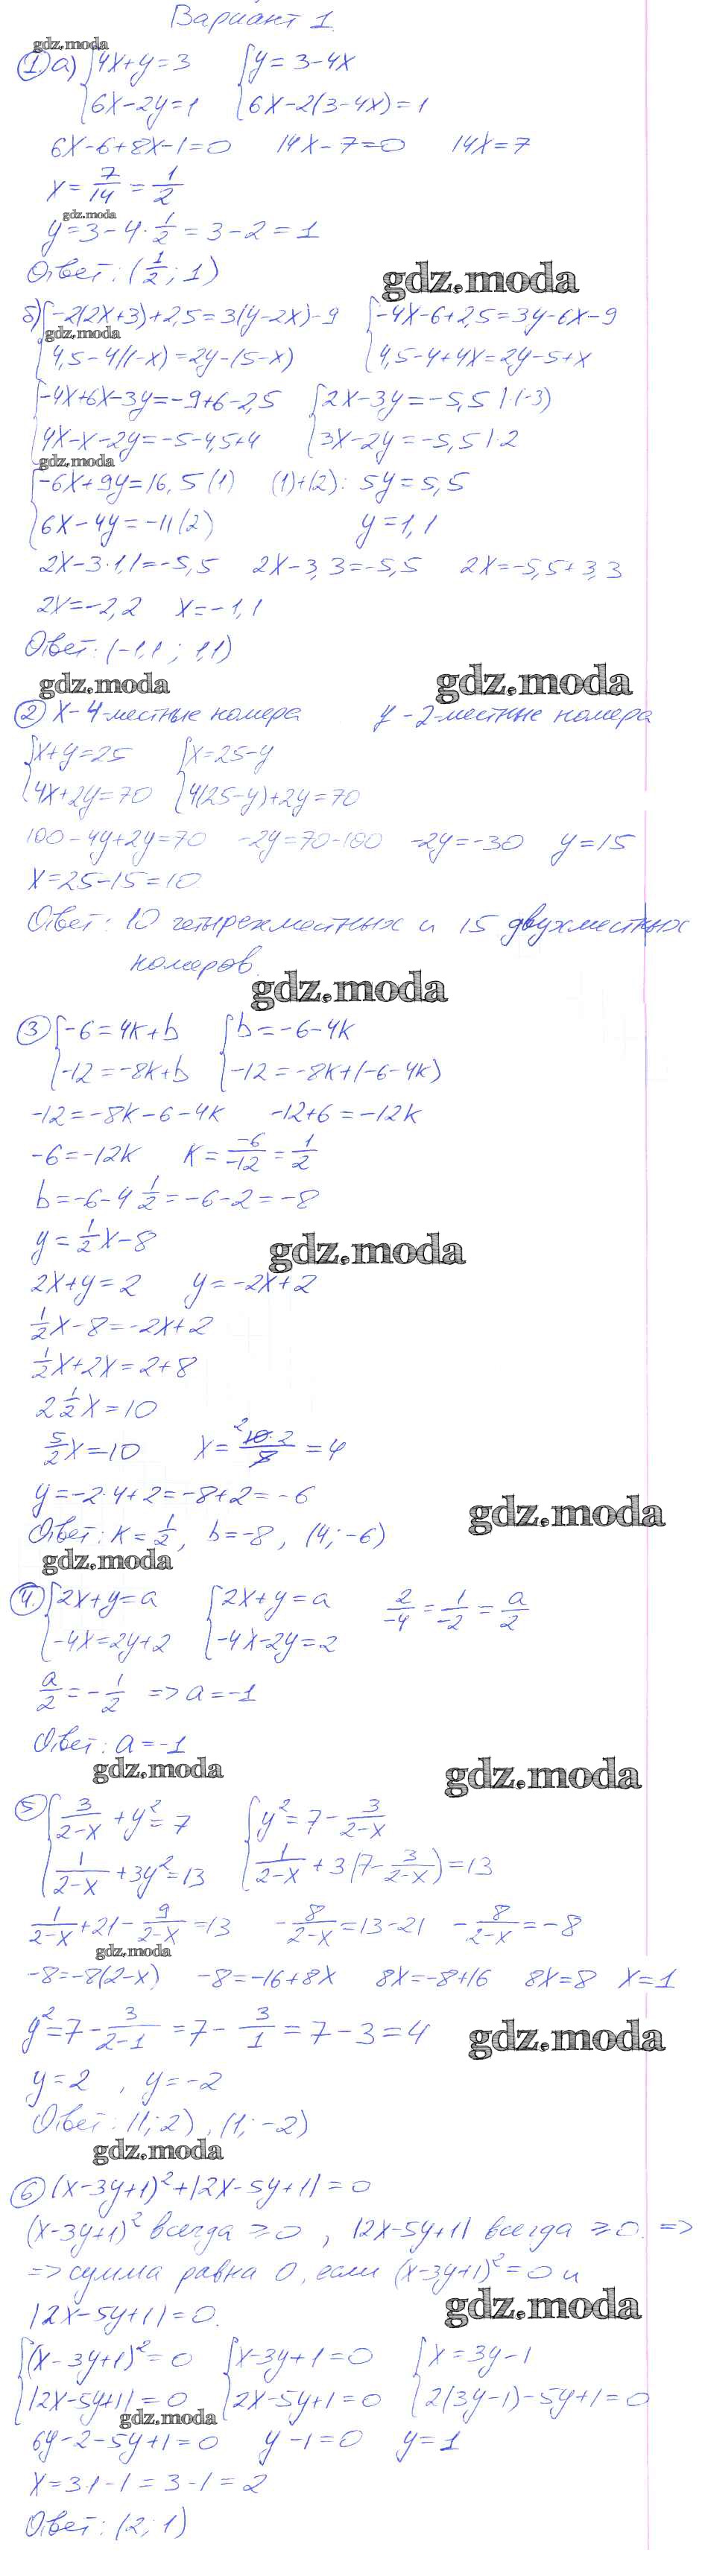 Вариант 1.
gdz.moda
① а) {4x+y=3 {y=3-4x
{6x-2y=1 {6x-2(3-4x)=1
6x-6+8x-1=0 14x-7=0 14x=7
x=7/14=1/2
gdz.moda
y=3-4·1/2=3-2=1
Ответ: (1/2; 1)
gdz.moda
б) {-2(2x+3)+2,5=3(y-2x)-9 {-4x-6+2,5=3y-6x-9
gdz.moda
{4,5-4(1-x)=2y-(5-x) {4,5-4+4x=2y-5+x
{-4x+6x-3y=-9+6-2,5 {2x-3y=-5,5 |·(-3)
{4x-x-2y=-5-4,5+4 {3x-2y=-5,5 |·2
gdz.moda
{-6x+9y=16,5 (1) (1)+(2): 5y=5,5
{6x-4y=-11 (2) y=1,1
2x-3·1,1=-5,5 2x-3,3=-5,5 2x=-5,5+3,3
2x=-2,2 x=-1,1
Ответ: (-1,1; 1,1)
gdz.moda gdz.moda
② x-4-местные номера y-2-местные номера
{x+y=25 {x=25-y
{4x+2y=70 {4(25-y)+2y=70
100-4y+2y=70 -2y=70-100 -2y=-30 y=15
x=25-15=10
Ответ: 10 четырехместных и 15 двухместных
номеров.
gdz.moda
③ {-6=4k+b {b=-6-4k
{-12=-8k+b {-12=-8k+(-6-4k)
-12=-8k-6-4k -12+6=-12k
-6=-12k k=-6/-12=1/2
b=-6-4 1/2=-6-2=-8
y=1/2x-8
gdz.moda
2x+y=2 y=-2x+2
1/2x-8=-2x+2
1/2x+2x=2+8
2 1/2x=10
5/2x=10 x=10·2/5=4
y=-2·4+2=-8+2=-6
gdz.moda
Ответ: k=1/2, b=-8, (4; -6)
gdz.moda
④ {2x+y=a {2x+y=a 2/-4=1/-2=a/2
{-4x=2y+2 {-4x-2y=2
a/2=-1/2 => a=-1
Ответ: a=-1
gdz.moda gdz.moda
⑤ {3/2-x+y²=7 {y²=7-3/2-x
{1/2-x+3y²=13 {1/2-x+3(7-3/2-x)=13
1/2-x+21-9/2-x=13 -8/2-x=13-21 -8/2-x=-8
gdz.moda
-8=-8(2-x) -8=-16+8x 8x=-8+16 8x=8 x=1
y²=7-3/2-1=7-3/1=7-3=4
gdz.moda
y=2, y=-2
Ответ: (1; 2), (1; -2)
gdz.moda
⑥ (x-3y+1)²+|2x-5y+1|=0
(x-3y+1)² всегда ≥0, |2x-5y+1| всегда ≥0. =>
=> сумма равна 0, если (x-3y+1)²=0 и
|2x-5y+1|=0.
gdz.moda
{(x-3y+1)²=0 {x-3y+1=0 {x=3y-1
{|2x-5y+1|=0 {2x-5y+1=0 {2(3y-1)-5y+1=0
gdz.moda
6y-2-5y+1=0 y-1=0 y=1
x=3·1-1=3-1=2
Ответ: (2; 1)